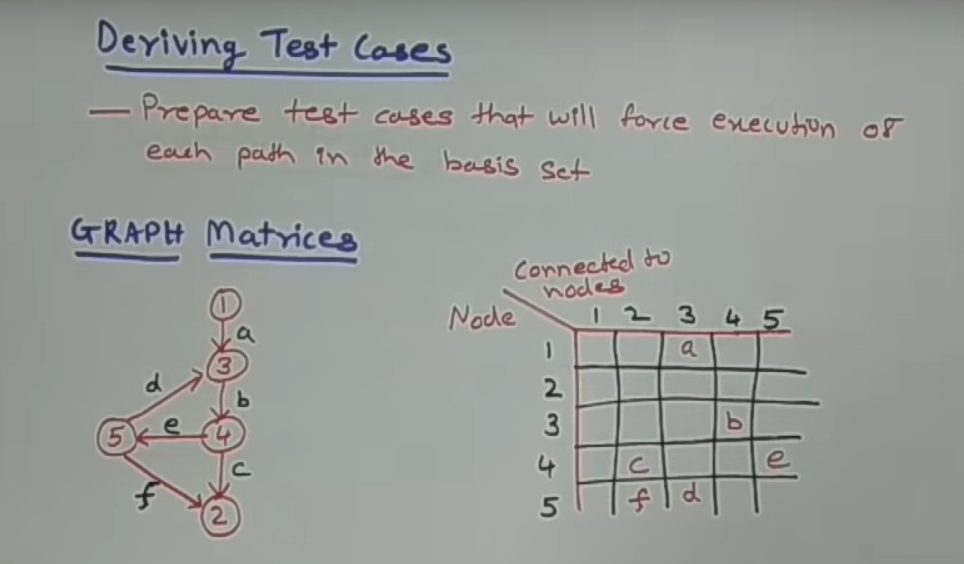 Deriving Test Cases
— Prepare test cases that will force execution of
each path in the basis set
GRAPH Matrices
1
a
3
d
b
5
e
4
c
f
2
Connected to
nodes
Node
1 2 3 4 5
1 a
2
3 b
4 c e
5 f d